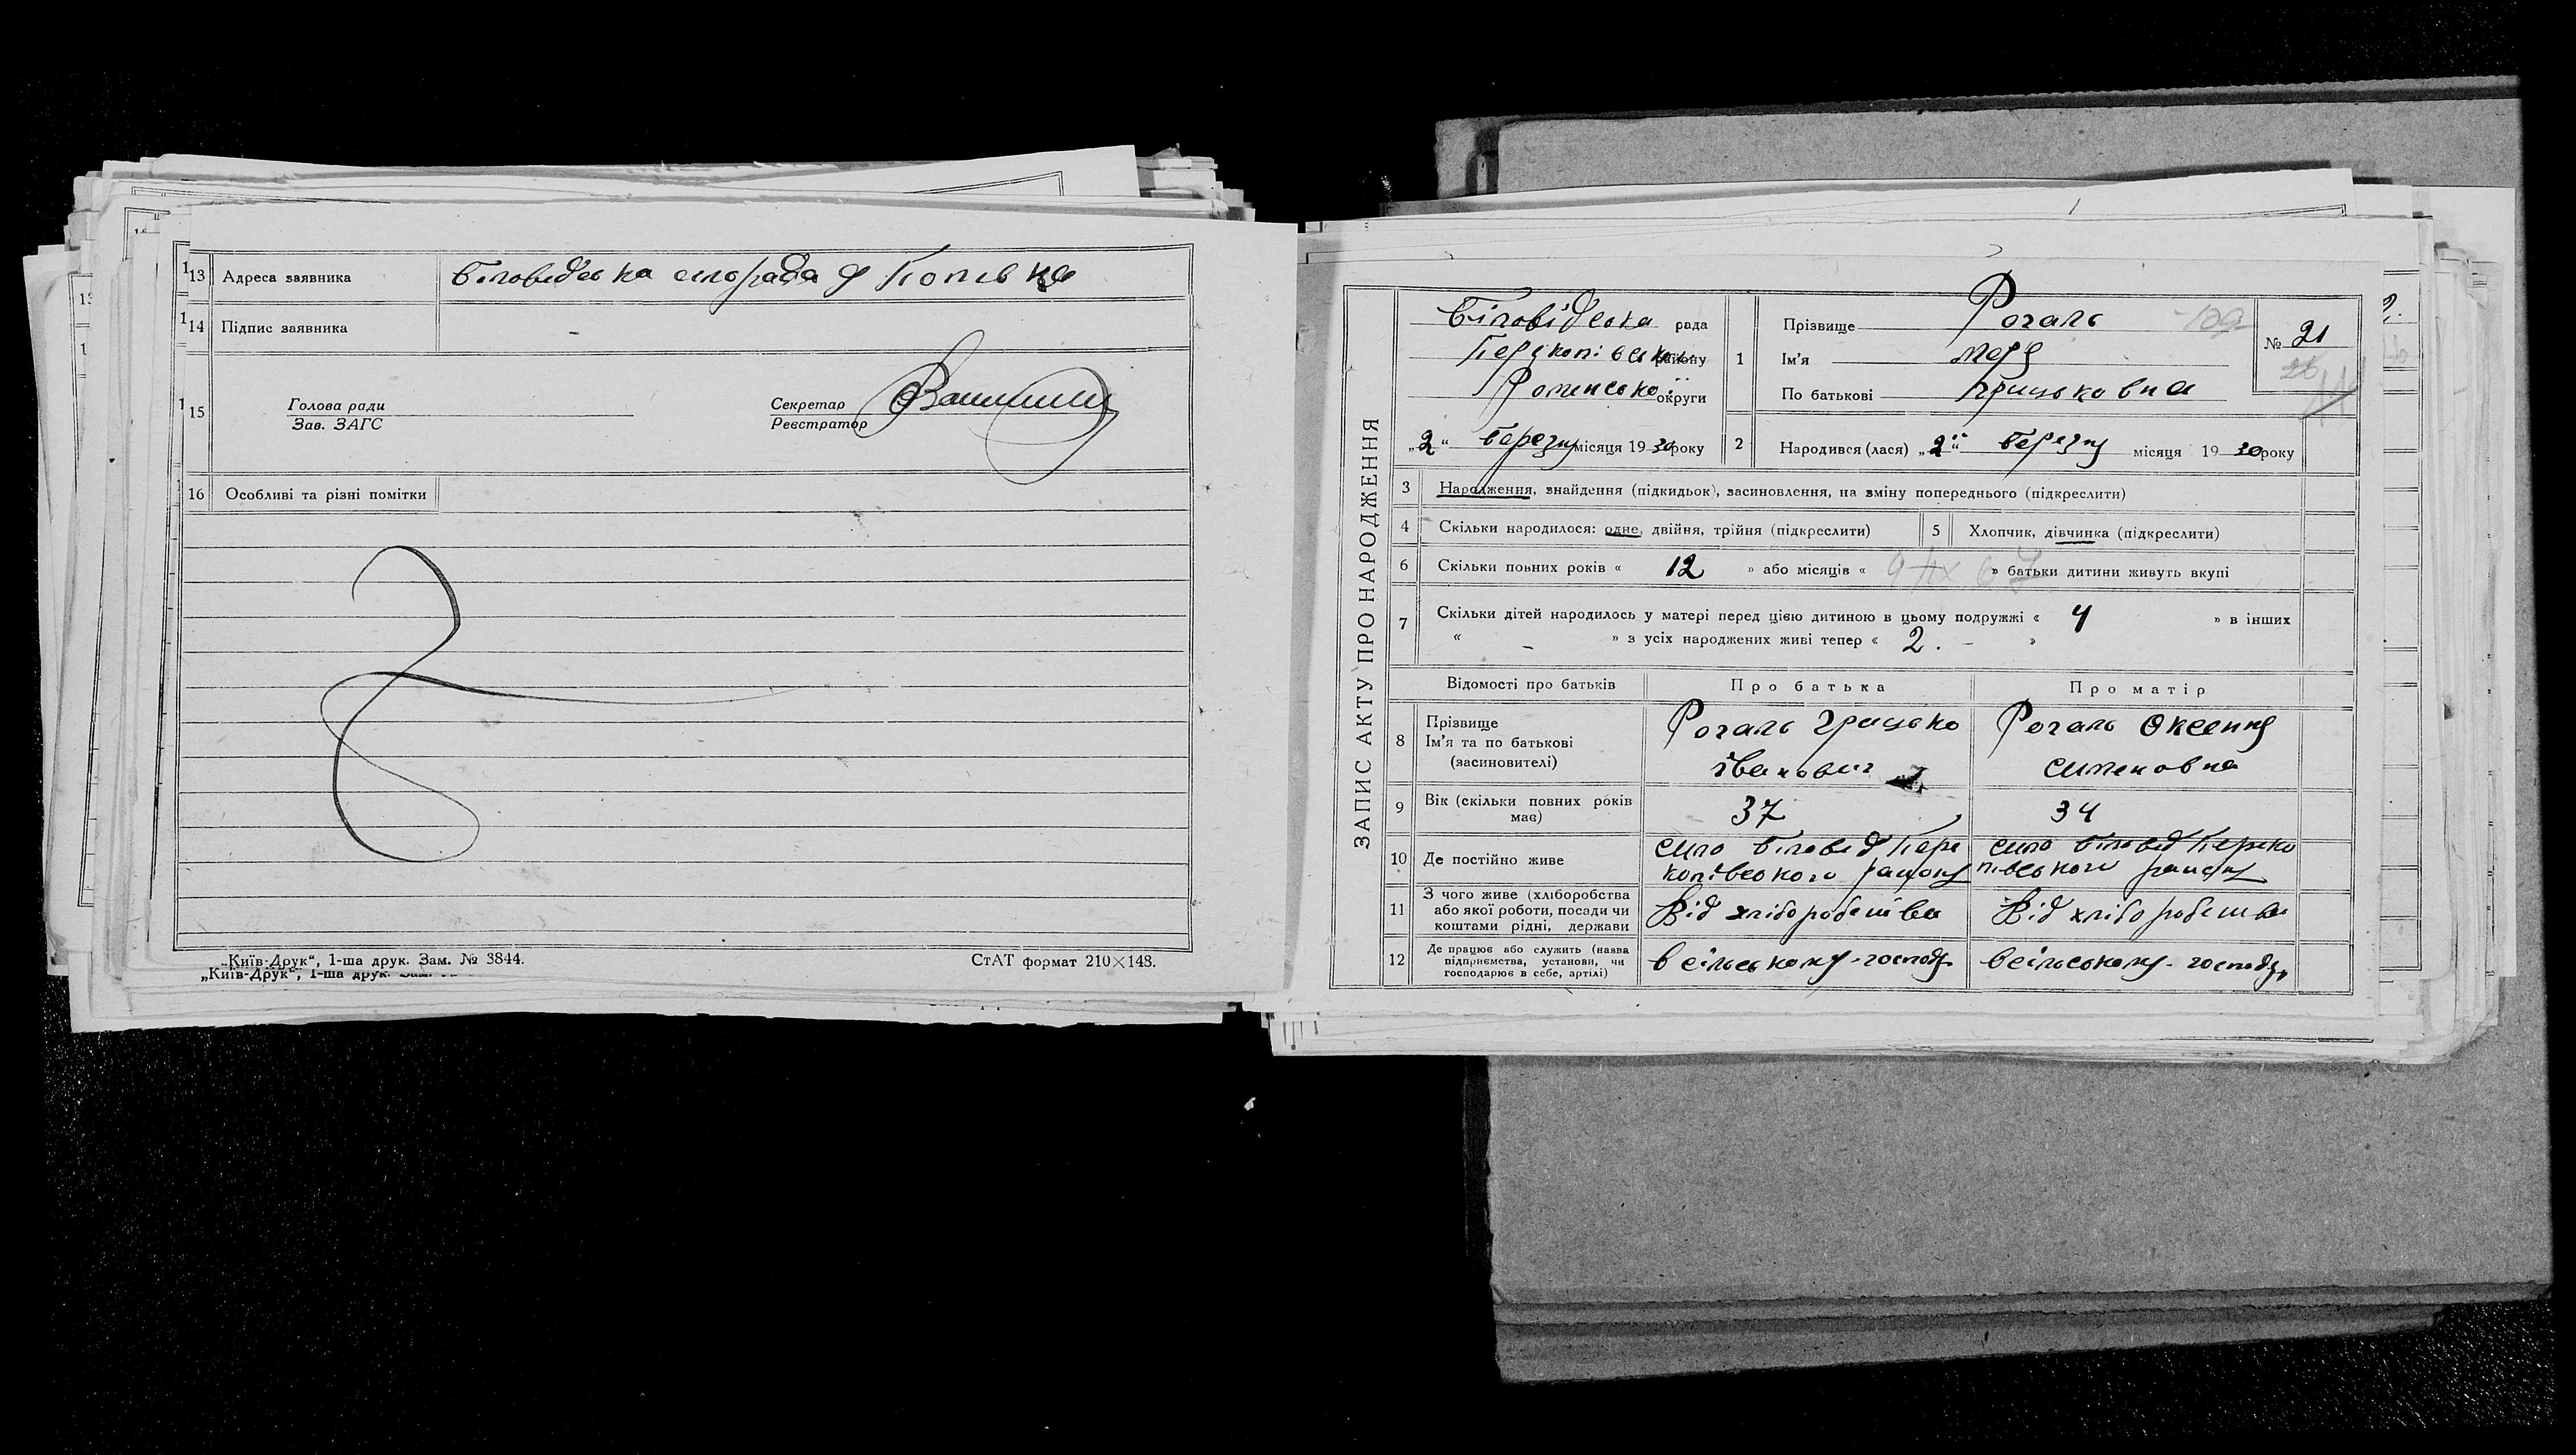 13 Адреса заявника Біловідська сільрада д Попівка
14 Підпис заявника -
15 Голова ради
Зав. ЗАГС
Секретар
Реєстратор
16 Особливі та різні помітки
„Київ-Друк“, 1-ша друк. Зам. № 3844.
СтАТ формат 210×148.
„Київ-Друк“, 1-ша друк.
ЗАПИС АКТУ ПРО НАРОДЖЕННЯ
Біловідська рада
Перекопівського району
Роменської округи
„2“ березня місяця 1930 року
1 Прізвище Рогаль
Ім'я
По батькові Грицьковна
№ 21
2 Народився (лася) „2“ березня місяця 1930 року
3 Народження, знайдення (підкидьок), засиновлення, на зміну попереднього (підкреслити)
4 Скільки народилося: одне, двійня, трійня (підкреслити)
5 Хлопчик, дівчинка (підкреслити)
6 Скільки повних років « 12 » або місяців « » батьки дитини живуть вкупі
7 Скільки дітей народилось у матері перед цією дитиною в цьому подружжі « 4 » в інших
« - » з усіх народжених живі тепер « 2. - »
Відомості про батьків Про батька Про матір
8 Прізвище
Ім'я та по батькові
(засиновителі)
Рогаль Грицько
Іванович
Рогаль Оксенья
Сименовна
9 Вік (скільки повних років
має)
37
34
10 Де постійно живе
село Біловід Пере
копівського району
село Біловід Переко
півського району
11 З чого живе (хліборобства
або якої роботи, посади чи
коштами рідні, держави
Від хліборобства
Від хліборобства
12 Де працює або служить (назва
підприємства, установи, чи
господарює в себе, артілі)
в сільському-господ
в сільському-господ